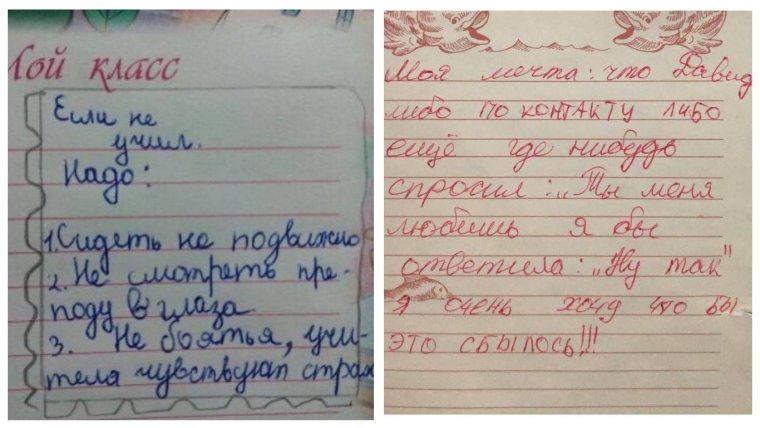 Мой класс
Если не
учил.
Надо:
1. Сидеть не подвижно
2. Не смотреть пре-
поду в глаза
3. Не боятья, учи-
теля чувствуют страх
Моя мечта: что Давид
либо по контакту либо
ещё где нибудь
спросил: „Ты меня
любишь я бы
ответила: „Ну так"
я очень хочу что бы
это сбылось!!!